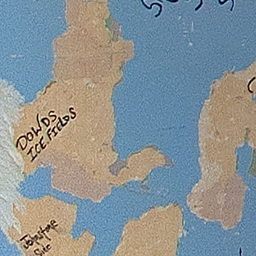 DOWDS
ICE FIELDS
Johnstone
Site